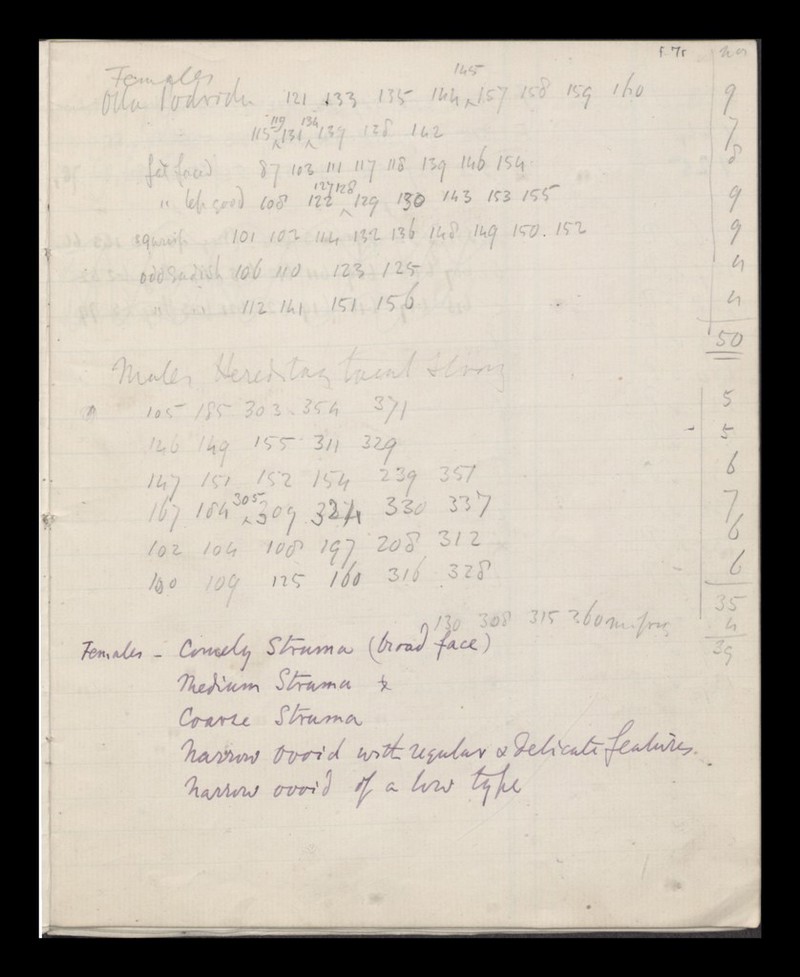 5.7r nos
Females 145
Olla Podrida 121 133 135 144 ‸ 157 158 159 160 9
119 134
115 ‸ 131 ‸ 139 128 142 7
fat faced 87 103 111 117 118 139 146 154 8
127 128
" left good 108 122 ‸ 129 130 143 153 155 9
squarish 101 102 114 132 136 148 149 150. 152 9
106 110 123 125 4
" " 112 141 151 156 4
50
Males Hereditary
105 185 303. 354 371 5
146 149 155 311 329 5
147 151 152 154 239 351 6
305
167 184 ‸ 309 324 330 337 7
102 104 108 197 208 312 6
100 109 125 160 316 328 6
35
130 308 315 260 4
39
Females - Comely Struma (broad face)
Medium Struma
Coarse Struma
narrow ovoid with regular & delicate features.
narrow ovoid of a low type